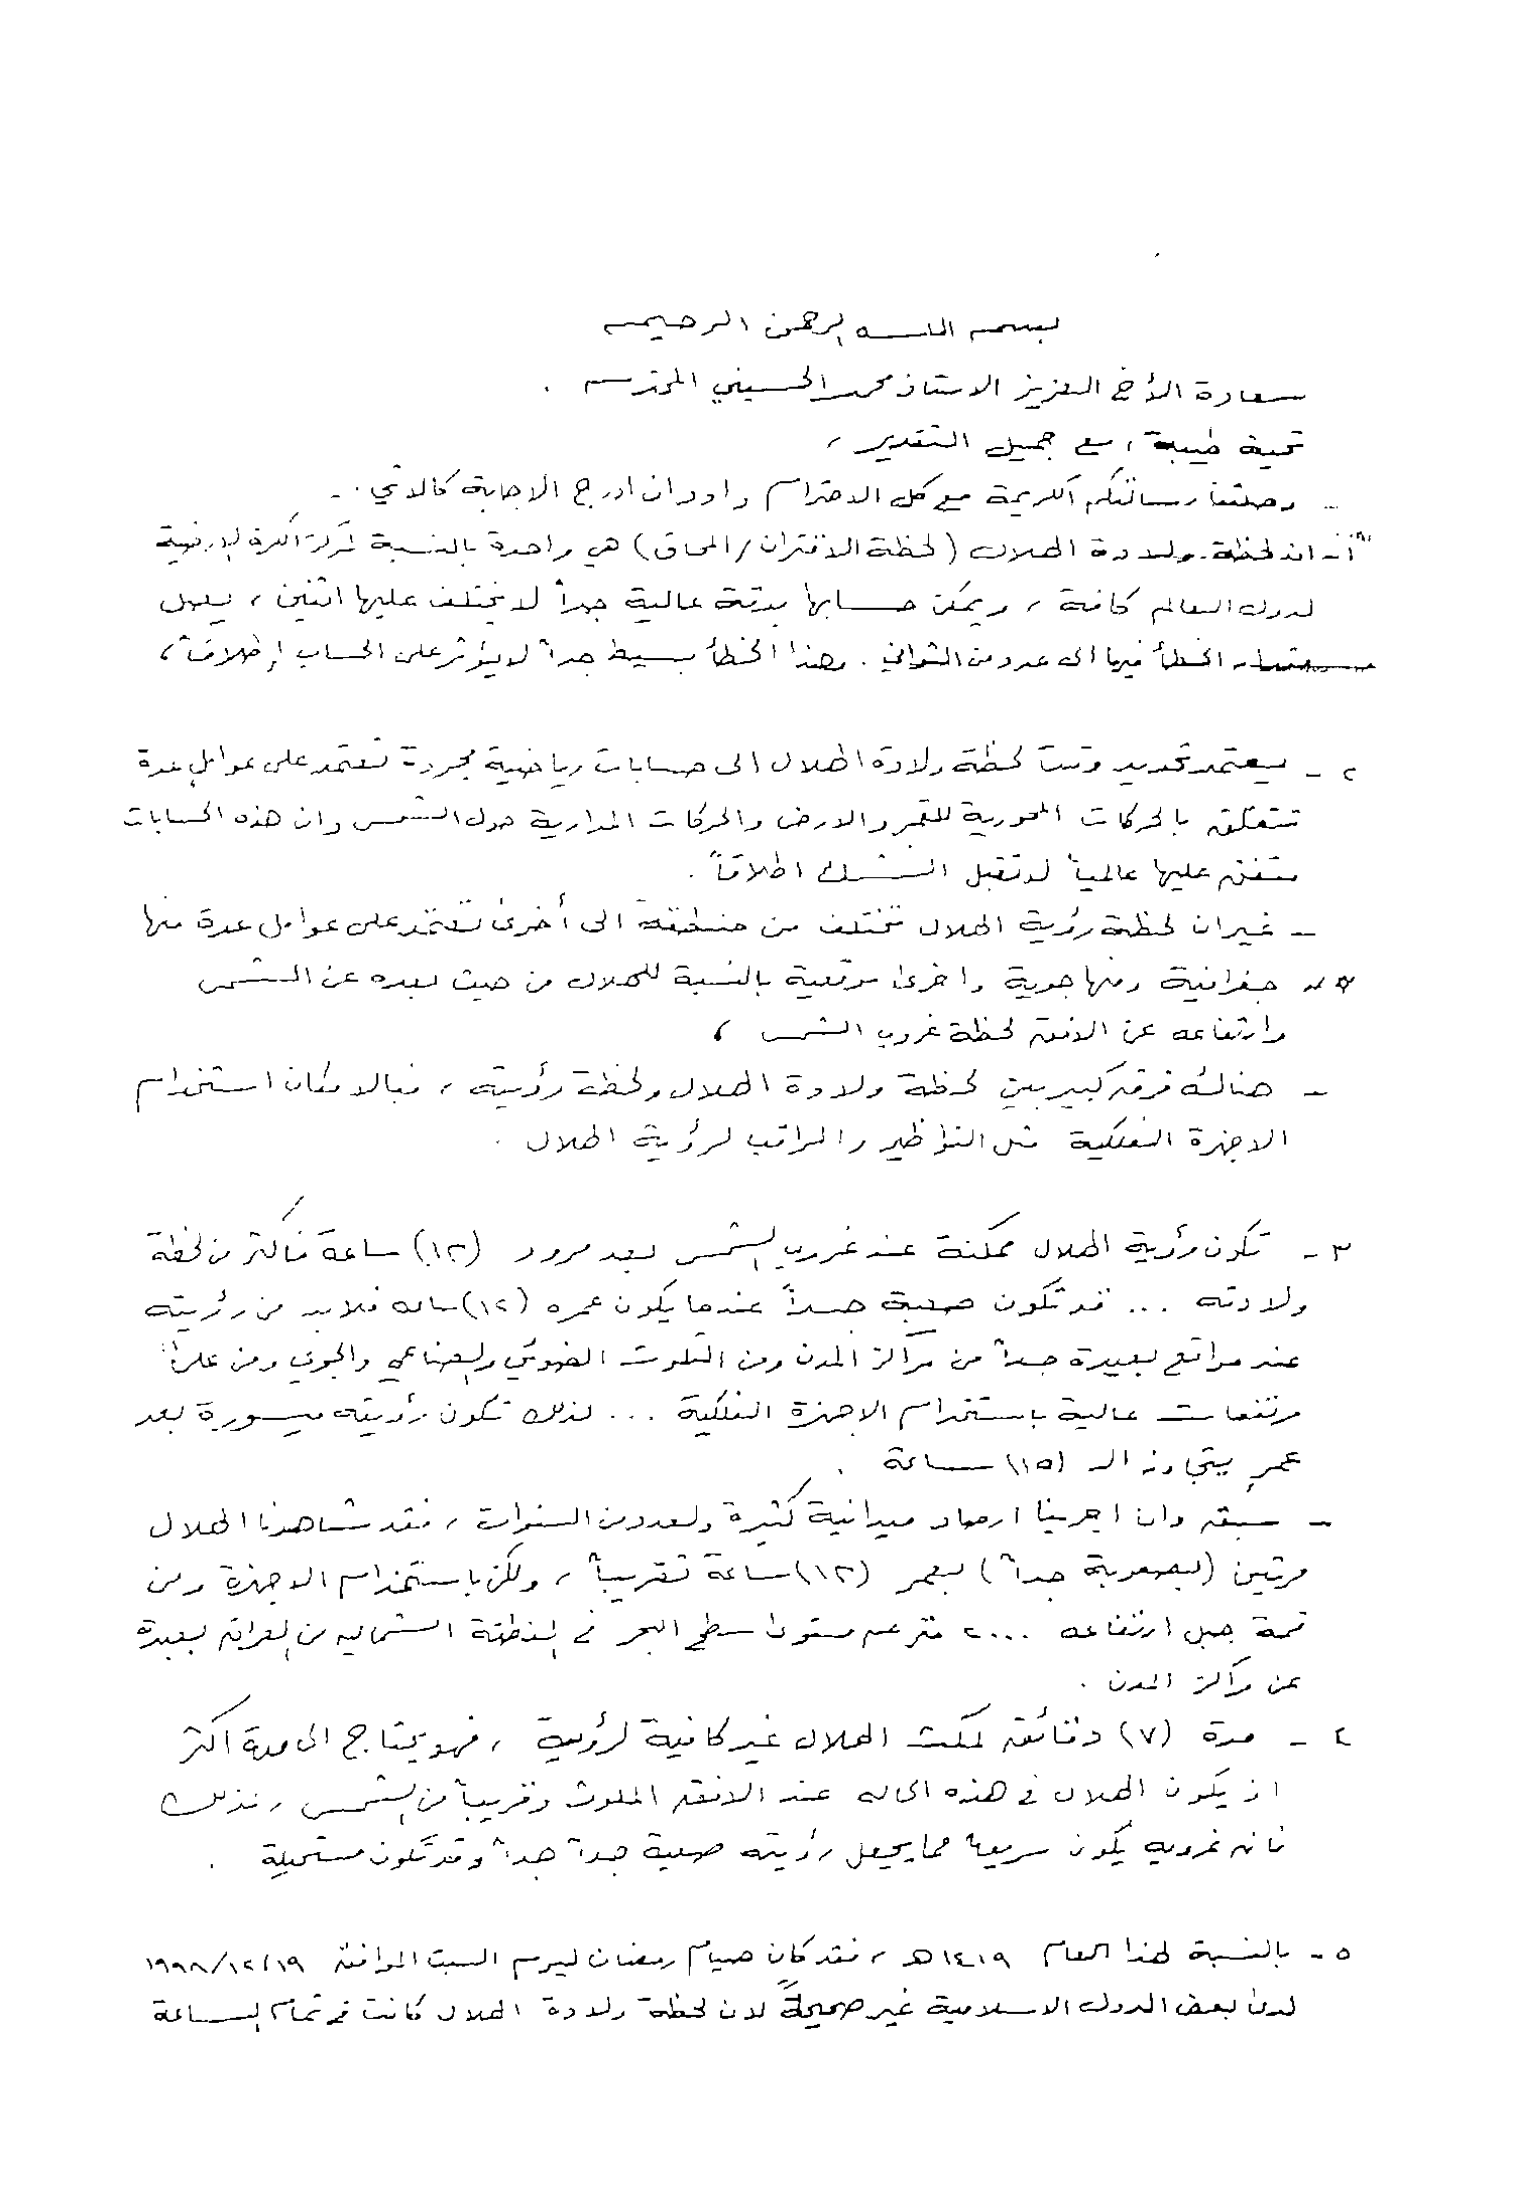 بسم الله الرحمن الرحيم
سعادة الأخ العزيز الاستاذ محمد الحسيني المحترم .
تحية طيبة ، مع جميل التقدير ،
- وصلتنا رسالتكم الكريمة مع كل الاحترام واود ان ادرج الاجابة كالاتي . -
ان لحظة ولادة الهلال (لحظة الاقتران / المحاق) هي واحدة بالنسبة لمركز الكرة الارضية
لدول العالم كافة ، ويمكن حسابها بدقة عالية جداً لا يختلف عليها اثنين ، يصل
الخطأ فيها الى عدد من الثواني . وهذا الخطأ بسيط جداً لا يؤثر على الحساب إطلاقاً ،
٢ - يعتمد تحديد وقت لحظة ولادة الهلال الى حسابات رياضية مجردة تعتمد على عوامل عدة
تتعلق بالحركات المحورية للقمر والارض والحركات المدارية حول الشمس وان هذه الحسابات
متفق عليها عالمياً لا تقبل الشك اطلاقاً .
- غير ان لحظة رؤية الهلال تختلف من منطقة الى أخرى تعتمد على عوامل عدة منها
جغرافية ومنها جوية واخرى موقعية بالنسبة للهلال من حيث بعده عن الشمس
وارتفاعه عن الافق لحظة غروب الشمس ،
- هنالك فرق كبير بين لحظة ولادة الهلال ولحظة رؤيته ، فبالامكان استخدام
الاجهزة الفلكية مثل النواظير والمراقب لرؤية الهلال .
٣ - تكون رؤية الهلال ممكنة عند غروب الشمس بعد مرور (١٢) ساعة فأكثر من لحظة
ولادته ... قد تكون صعبة جداً عندما يكون عمره (١٢) ساعه فلابد من رؤيته
عند مواقع بعيدة جداً من مراكز المدن ومن التلوث الضوئي والصناعي والجوي ومن على
مرتفعات عالية باستخدام الاجهزة الفلكية ... لذلك تكون رؤيته ميسورة بعد
عمر يتجاوز الـ (١٥) ساعة .
- سبق وان اجرينا ارصاد ميدانية كثيرة ولعدد من السنوات ، فقد شاهدنا الهلال
مرتين (بصعوبة جداً) بعمر (١٢) ساعة تقريباً ، ولكن باستخدام الاجهزة ومن
قمة جبل ارتفاعه ٢٠٠٠ متر عن مستوى سطح البحر في المنطقة الشمالية من العراق بعيدة
عن مراكز المدن .
٤ - مدة (٧) دقائق لمكث الهلال غير كافية لرؤية ، فهو يحتاج الى مدة اكثر
اذ يكون الهلال في هذه الحاله عند الافق الملوث وقريباً من الشمس ، لذلك
فان غروبه يكون سريعاً مما يجعل رؤيته صعبة جداً جداً وقد تكون مستحيلة .
٥ - بالنسبة لهذا العام ١٤١٩هـ ، فقد كان صيام رمضان ليوم السبت الموافق ١٩٩٨/١٢/١٩
لدى بعض الدول الاسلامية غير صحيحة لان لحظة ولادة الهلال كانت في تمام الساعة